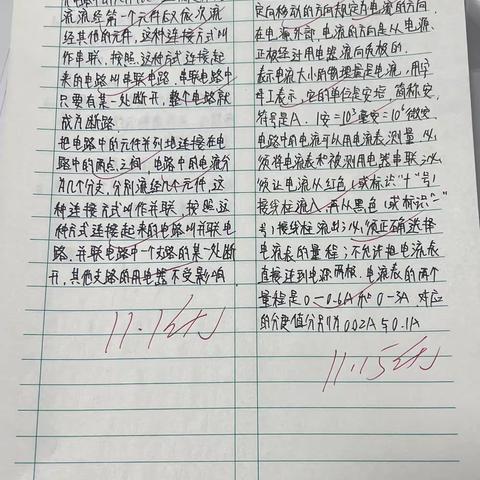 流流经第一个元件后又依次流
经其他的元件,这种连接方式叫
作串联,按照这种方式连接起
来的电路叫串联电路,串联电路中
只要有某一处断开,整个电路就
成为断路.
把电路中的元件并列地连接在电
路中的两点之间,电路中的电流分
为几个分支,分别流经几个元件,这
种连接方式叫作并联,按照这
种方式连接起来的电路叫并联电
路.并联电路中一个支路的某一处断
开,其他支路的用电器不受影响
11.14
定向移动的方向规定为电流的方向.
在电源外部,电流的方向是从电源
正极经过用电器流向负极的.
表示电流大小的物理量是电流,用字
母I表示,它的单位是安培 简称安,
符号是A.1安=10³毫安=10⁶微安
电路中的电流可以用电流表测量.必
须将电流表和被测用电器串联;必
须让电流从红色(或标识"+"号)
接线柱流入,再从黑色(或标识"-"
号)接线柱流出;必须正确选择
电流表的量程;不允许把电流表
直接连到电源两极.电流表的两个
量程是0-0.6A和0-3A 对应
的分度值分别为0.02A与0.1A
11.15